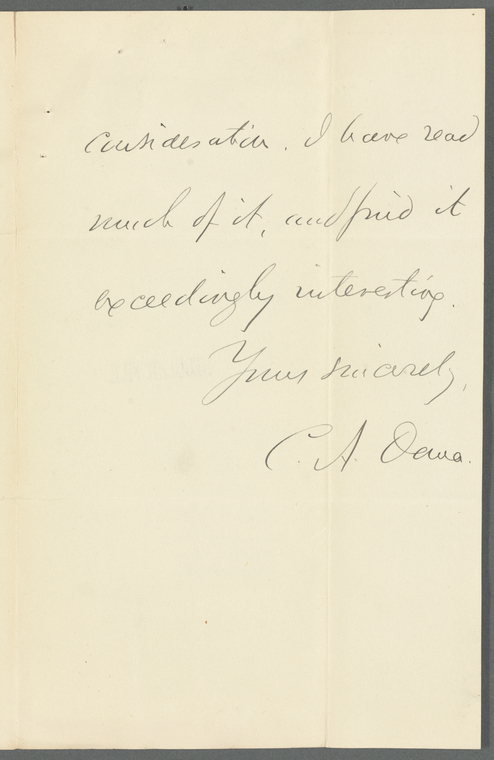 consideration. I have read
much of it, and find it
exceedingly interesting.
Yours sincerely,
C. A. Dana.